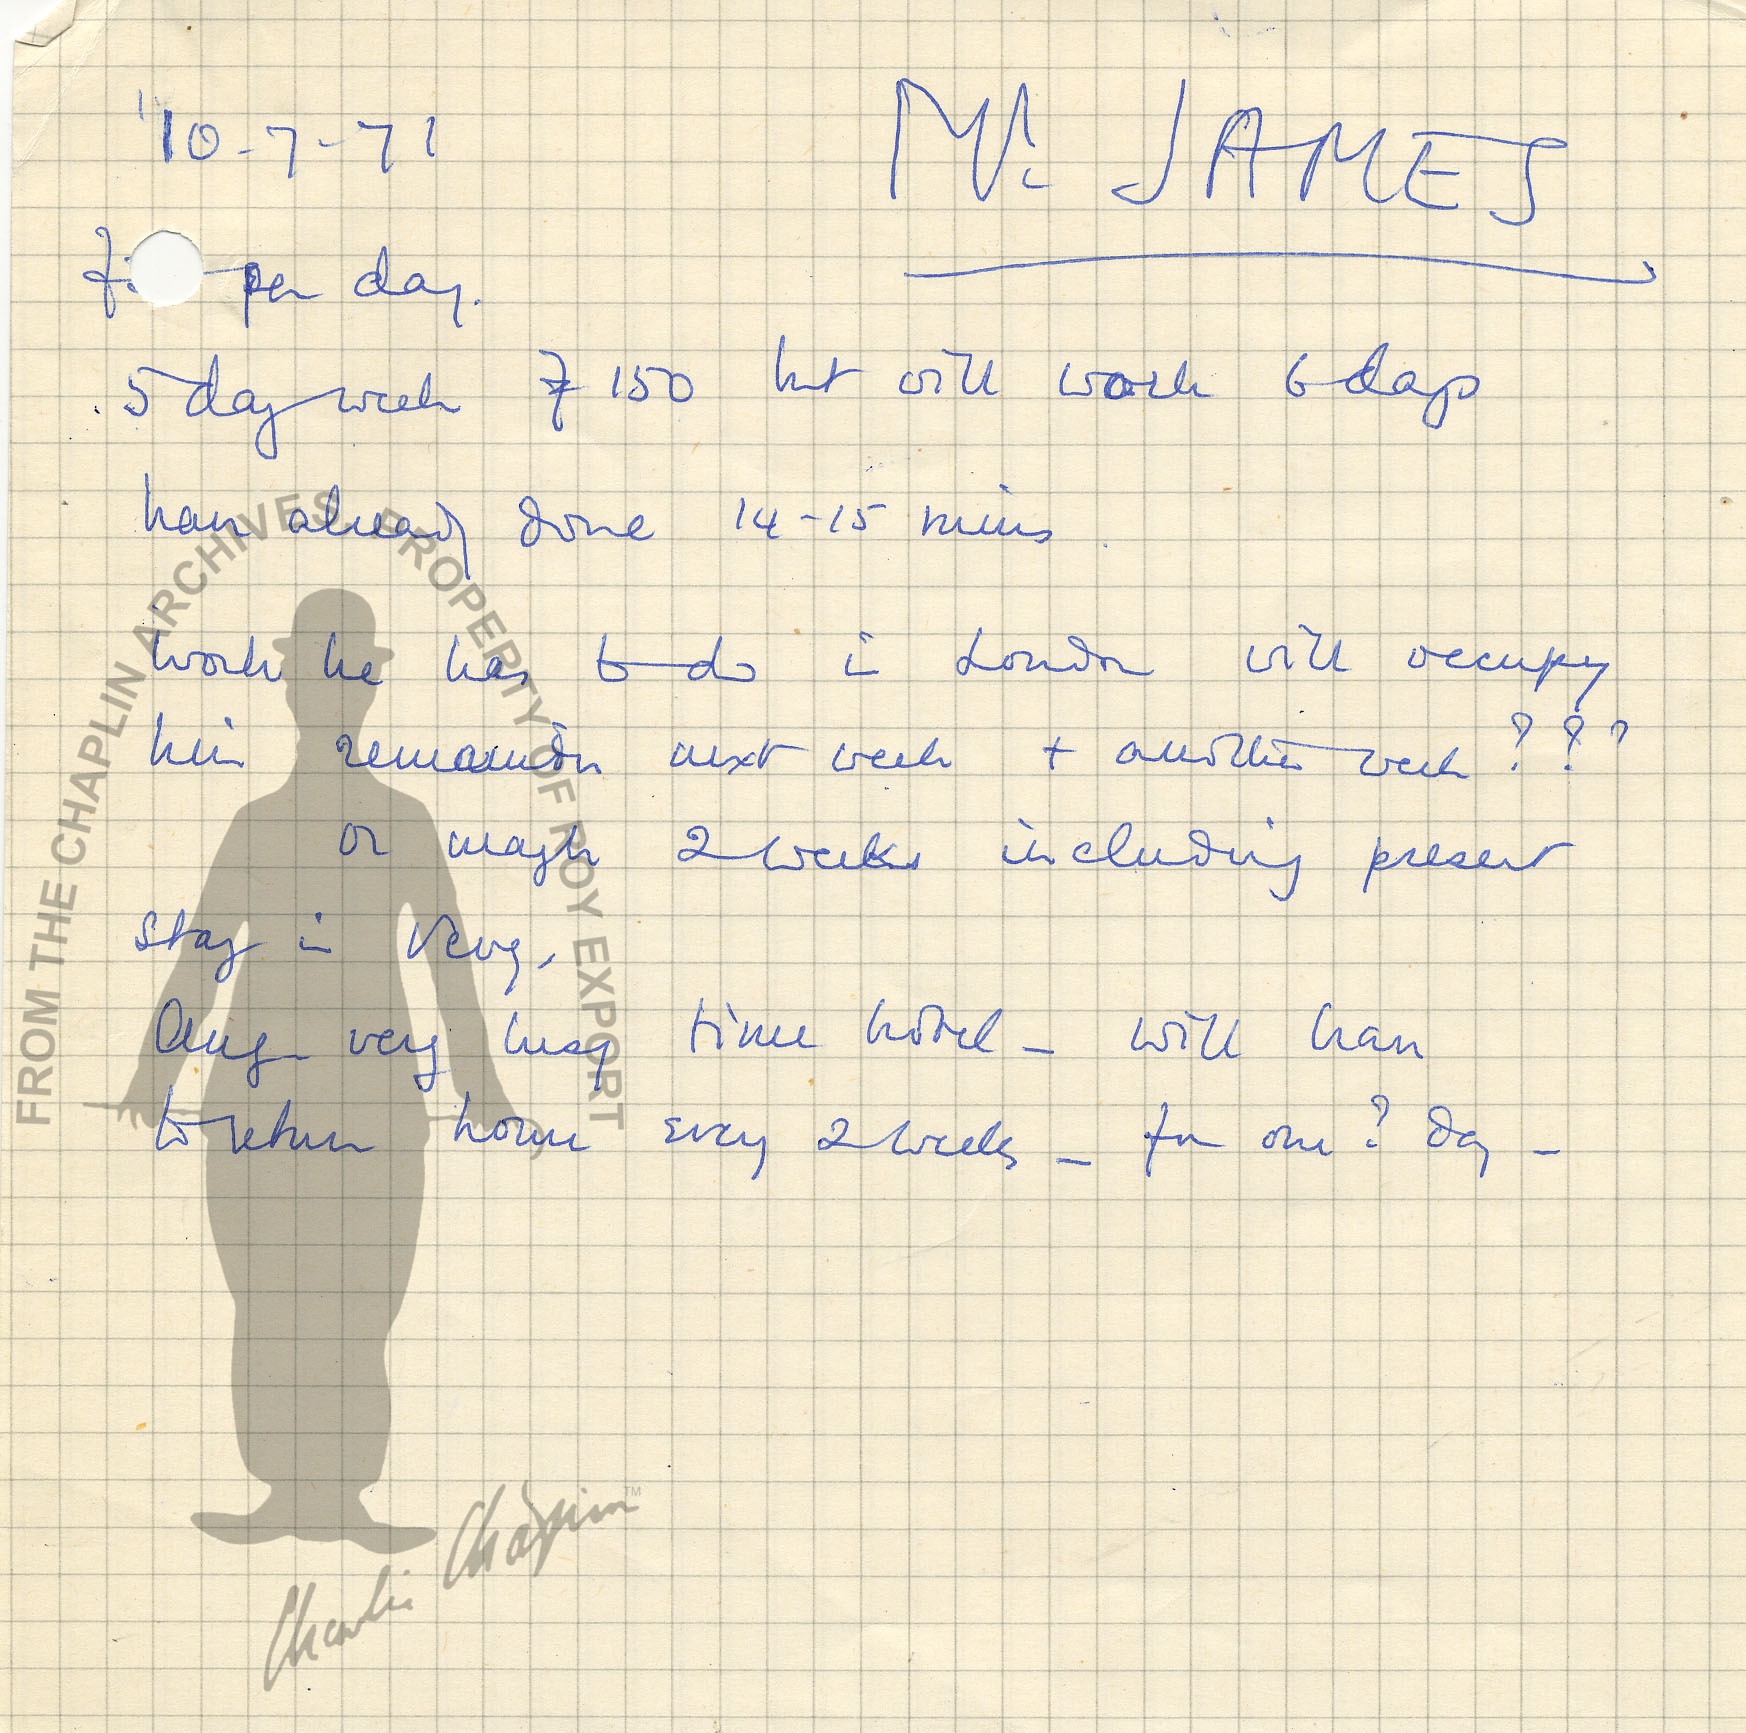 10-7-71
Mr. JAMES
per day.
5 day week £ 150 but will work 6 days
have already done 14-15 mins.
Work he has to do in London will occupy
him remainder next week + another week ???
or maybe 2 weeks including present
stay in Vevey.
Aug. very busy time hotel - will have
to return home every 2 weeks - for one? day -
FROM THE CHAPLIN ARCHIVES, PROPERTY OF ROY EXPORT
Charlie Chaplin TM